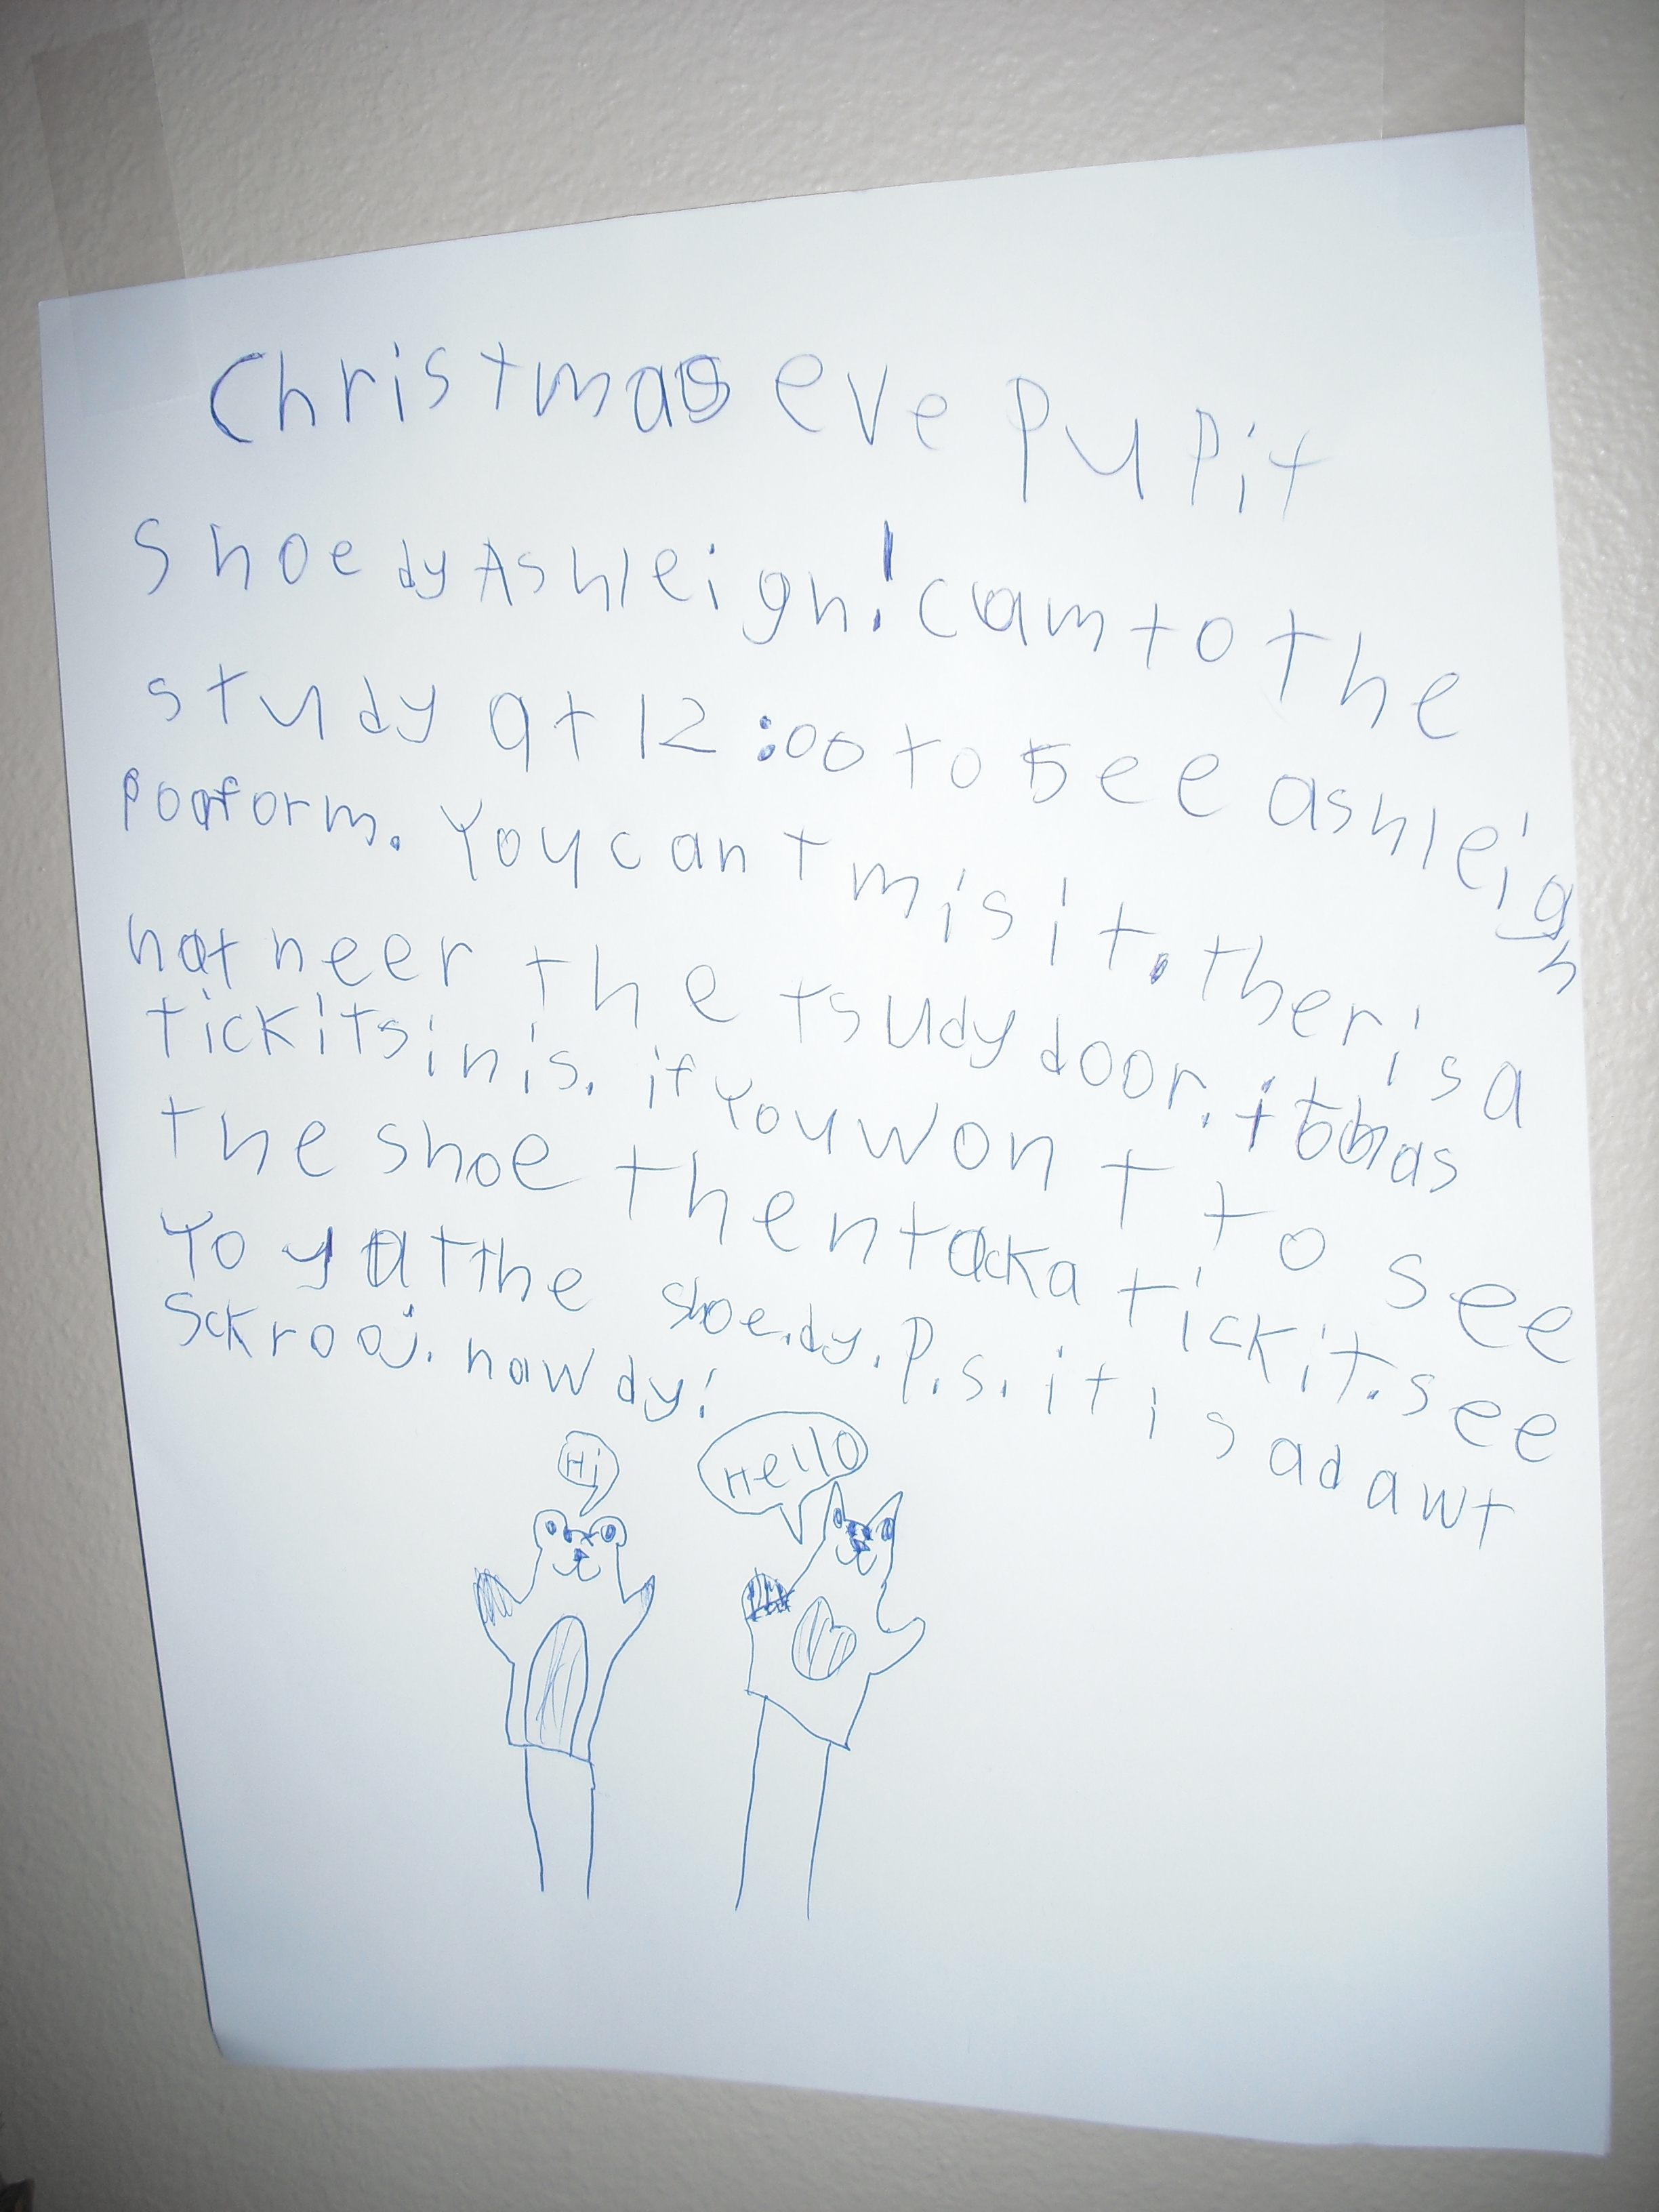 Christmas eve Pupit
Shoe dy Ashleigh! cam to the
study at 12:00 to see ashleigh
Poarform. You cant mis it. ther is a
hat neer the tsudy door. it has
tickits in is. if You wont to see
the shoe then tacka tickit. see
Yo y at the shoe.dy. P.s. it is adawt
Sckrooj. howdy!
Hi
Hello